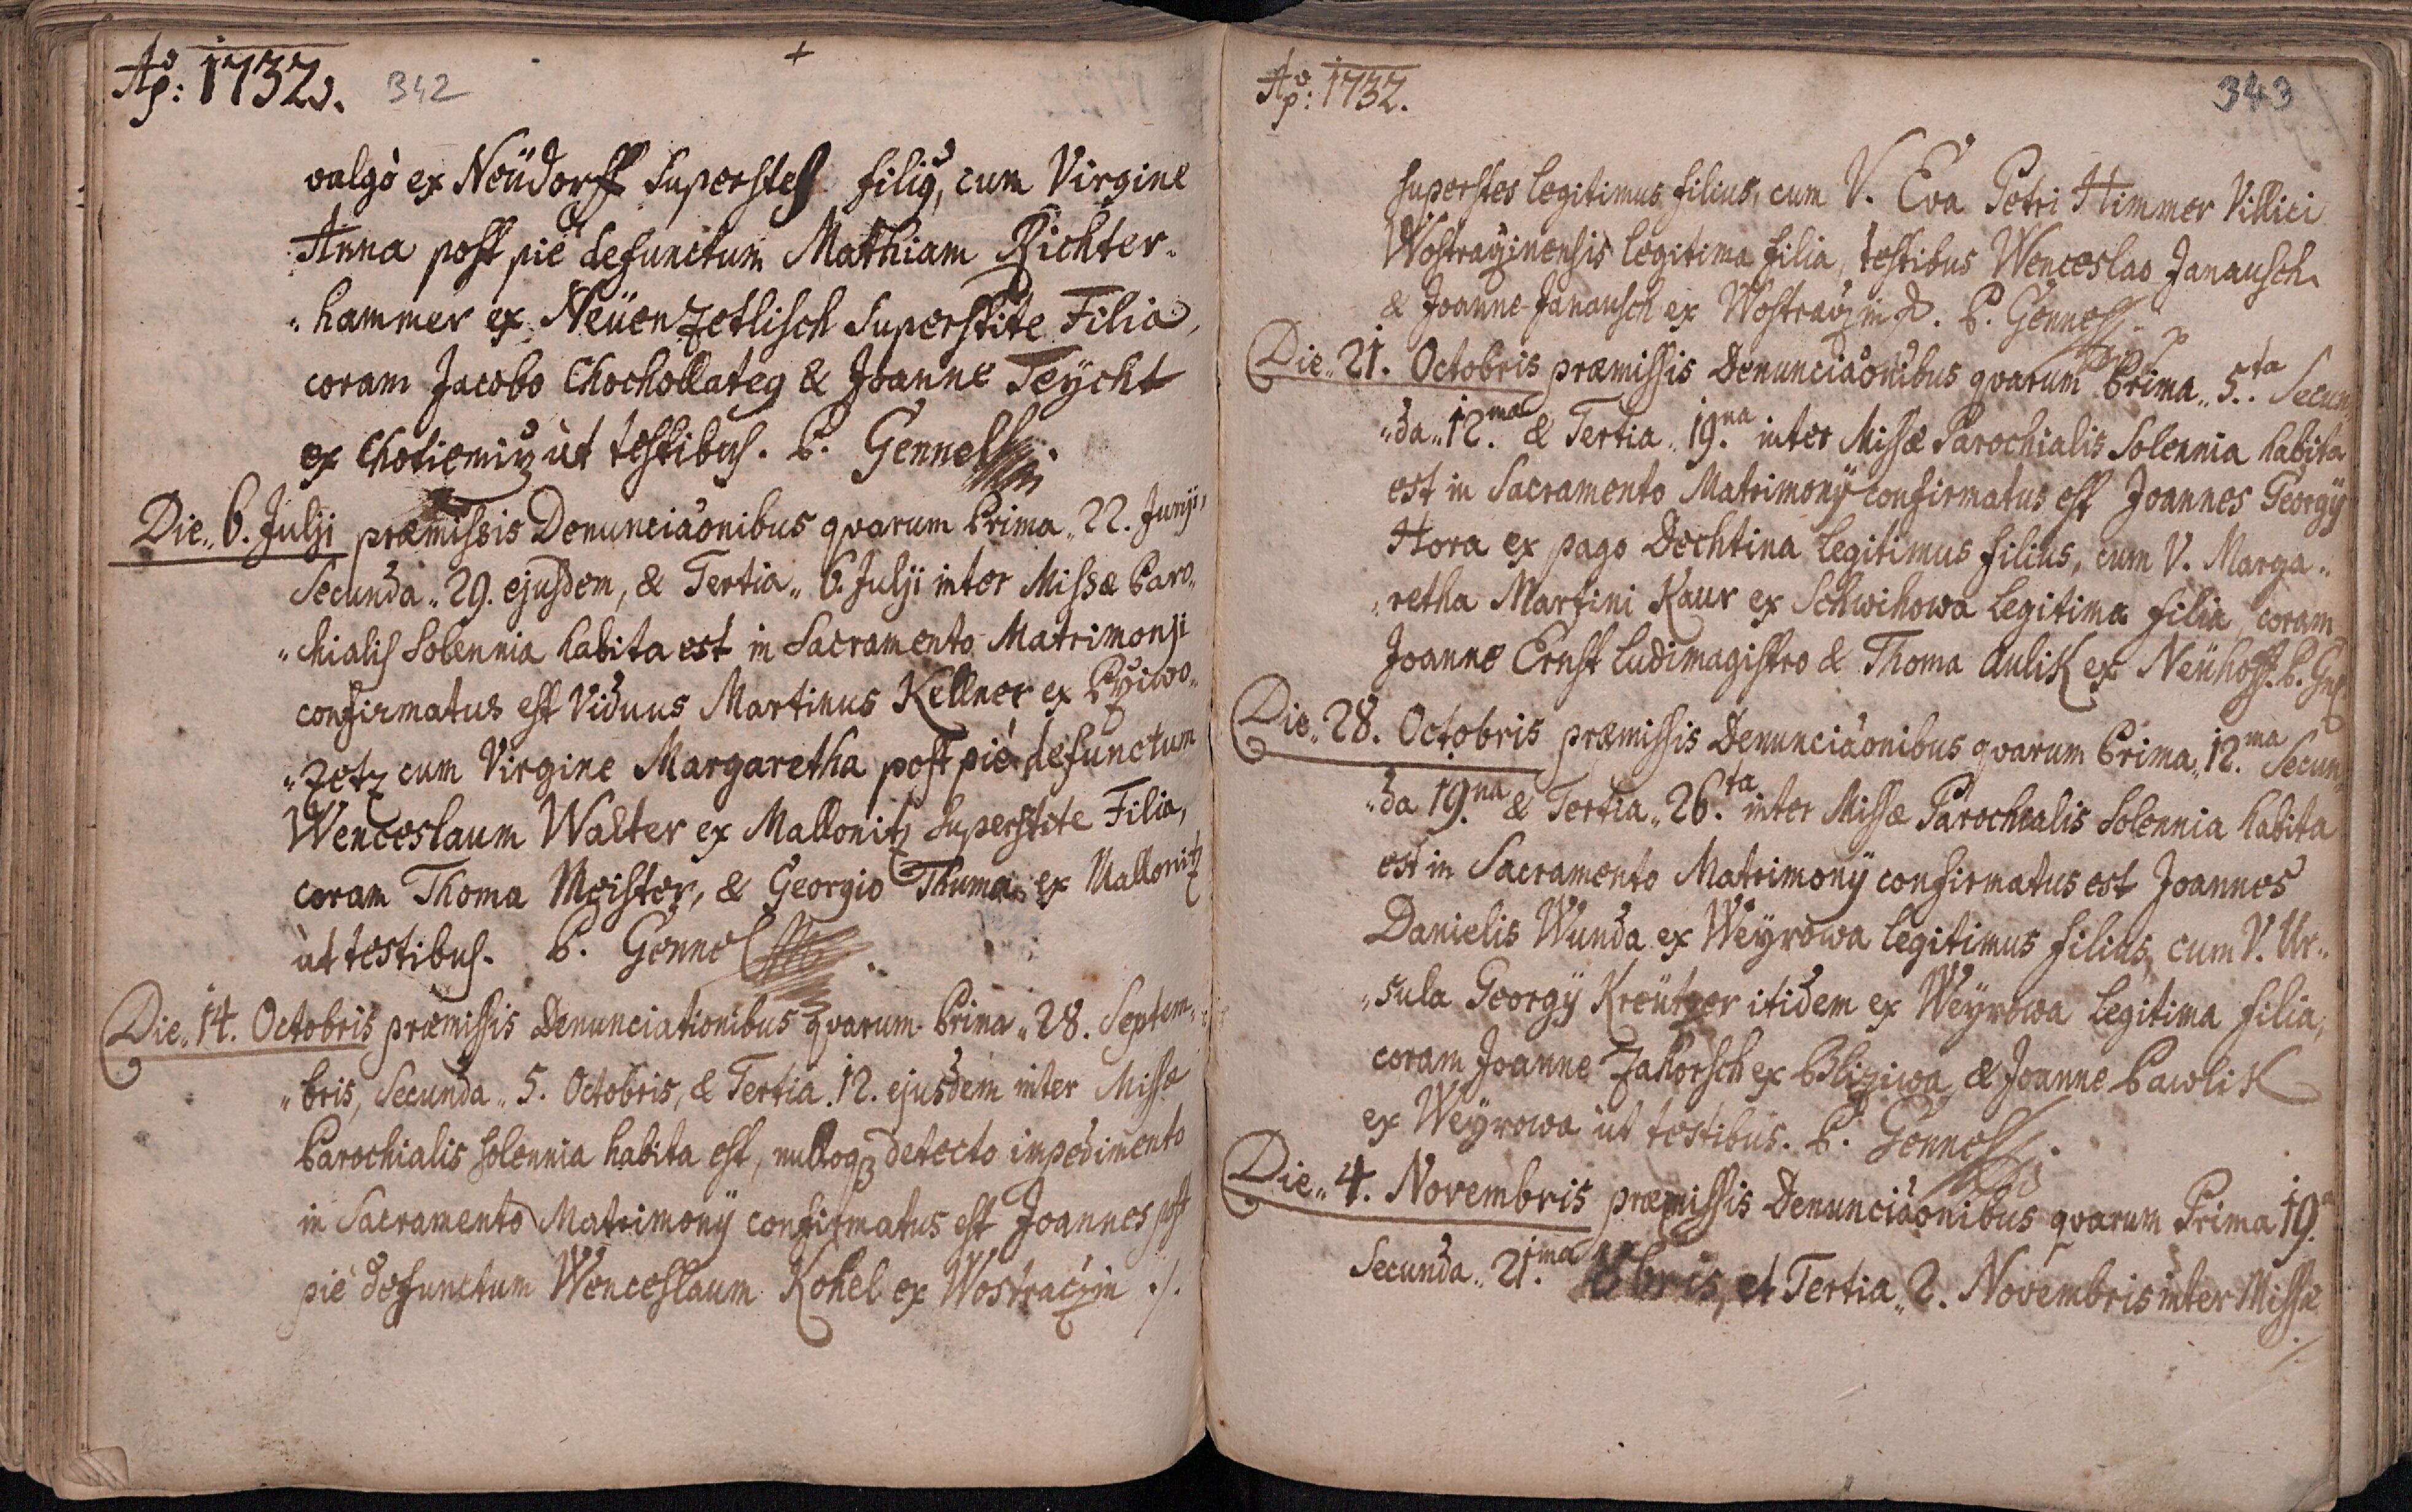 Aō: 1732. 342
vulgò ex Neüdorff Superstes filiꝯ, cum Virgine
Anna post piè defunctum Mathiam Richter„
„hammer ex Neüenzetlisch Superstite Filia,
coram Jacobo Chochollateg & Joanne Teÿcht
ex Chotiemitz ùt testibus. P. Gennel
Die„ 6. Julÿ præmissis Denunciãonibus qvarum Prima„ 22. Junÿ,
Secunda„ 29. ejusdem, & Tertia„ 6. Julÿ inter Missæ Paro„
„chialis Solennia habita est in Sacramento Matrimonÿ
confirmatus est Viduus Martinus Kellner ex Pziwo„
„zetz cum Virgine Margaretha post piè defunctum
Wenceslaum Walter ex Mallonitz Superstite Filia,
coram Thoma Meister, & Georgio Thuma ex Mallonitz
ùt testibus. P. Gennel
Die„ 14. Octobris præmissis Denunciationibus qvarum Prima„ 28. Septem„
„bris, Secunda„ 5. Octobris, & Tertia. 12. ejusdem inter Missæ
Parochialis solennia habita est, nulloqꝫ detecto impedimento
in Sacramento Matrimonÿ confirmatus est Joannes pst
piè defunctum Wenceslaum Kohel ex Wostraczin ./.
Aō: 1732. 343
superstes legitimus filius, cum V. Eva Petri Himmer Villici
Wostraczinensis legitima filia, testibus Wenceslao Janausch
& Joanne Janausch ex Wostraczin P. Gennel
Die„ 21. Octobris præmissis Denunciãonibus qvarum Prima„ 5.ta Secun„
„da„ 12.ma & Tertia„ 19.na inter Missæ Parochialis Solennia habita
est in Sacramento Matrimonÿ confirmatus est Joannes Georgÿ
Hora ex pago Dechtina legitimus filius, cum V. Marga„
„retha Martini Kaur ex Schwihowa legitima filia, coram
Joanne Ernst Ludimagistro & Thoma Aulik ex Neühoff. P. Gnl
Die„ 28. Octobris præmissis Denunciãonibus qvarum Prima„ 12.ma Secun„
„da 19.na & Tertia„ 26.ta inter Missæ Parochialis Solennia habita
est in Sacramento Matrimonÿ confirmatus est Joannes
Danielis Wunda ex Weÿrowa legitimus filius, cum V. Ur„
„sula Georgÿ Kreützer itidem ex Weÿrowa legitima filia,
coram Joanne Zahorsch ex Bliziwa, & Joanne Pawlik
ex Weÿrowa ùt testibus. P. Gennel
Die„ 4. Novembris præmissis Denunciãonibus qvarum Prima 19.a
Secunda„ 21.ma 8bris, et Tertia„ 2. Novembris inter Missæ
./.